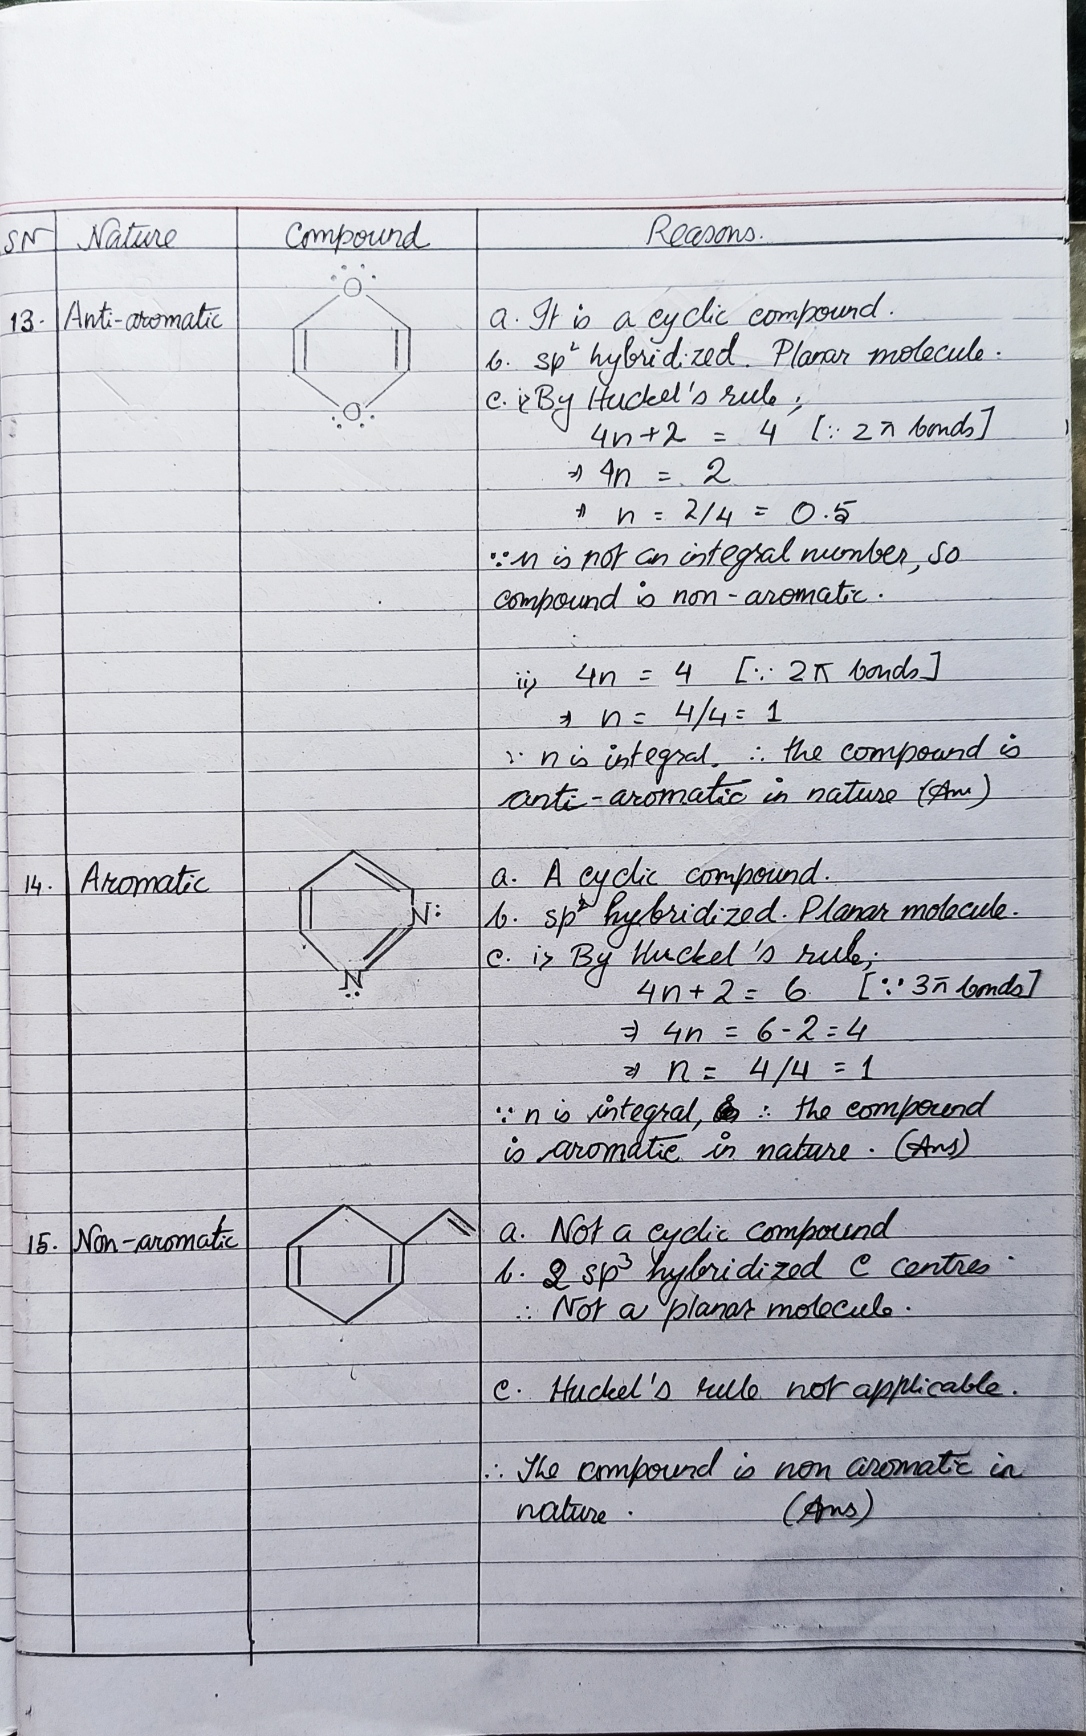 SN Nature Compound Reasons.
13. Anti-aromatic
O
O
a. It is a cyclic compound.
b. sp² hybridized. Planar molecule.
c. i> By Huckel's rule;
4n+2 = 4 [∵ 2π bonds]
⇒ 4n = 2
⇒ n = 2/4 = 0.5
∵ n is not an integral number, so
compound is non-aromatic.
ii> 4n = 4 [∵ 2π bonds]
⇒ n = 4/4 = 1
∵ n is integral. ∴ the compound is
anti-aromatic in nature (Ans)
14. Aromatic
N:
N
a. A cyclic compound.
b. sp² hybridized. Planar molecule.
c. i> By Huckel's rule;
4n+2 = 6 [∵ 3π bonds]
⇒ 4n = 6-2 = 4
⇒ n = 4/4 = 1
∵ n is integral, ∴ the compound
is aromatic in nature. (Ans)
15. Non-aromatic
a. Not a cyclic compound
b. 2 sp³ hybridized C centres
∴ Not a planar molecule.
c. Huckel's rule not applicable.
∴ The compound is non aromatic in
nature. (Ans)